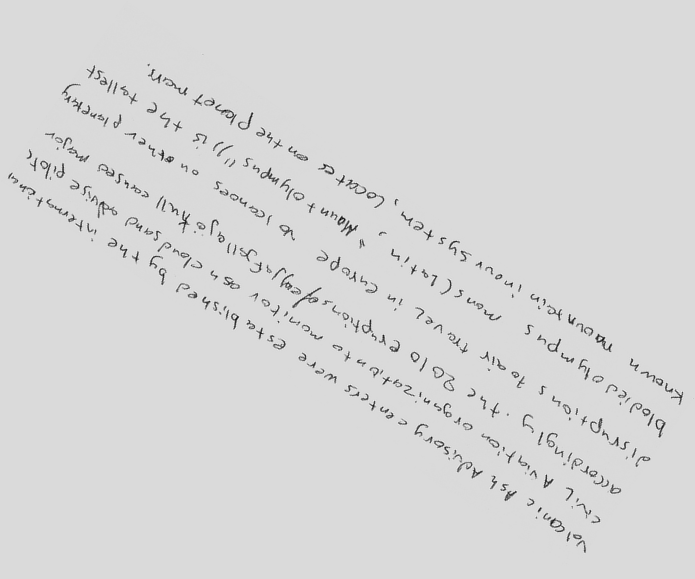 Volcanic Ash Advisory centers were established by the international
civil Aviation organization to monitor ash cloud sand advise pilots
accordingly. the 2010 eruptions of eyjafjallajokull caused major
disruptions to air travel in Europe volcanoes on other planetary
blodied olympus mons (Latin, "Mount olympus")) is the tallest
known mountain in our system, Locates on the planet mars.